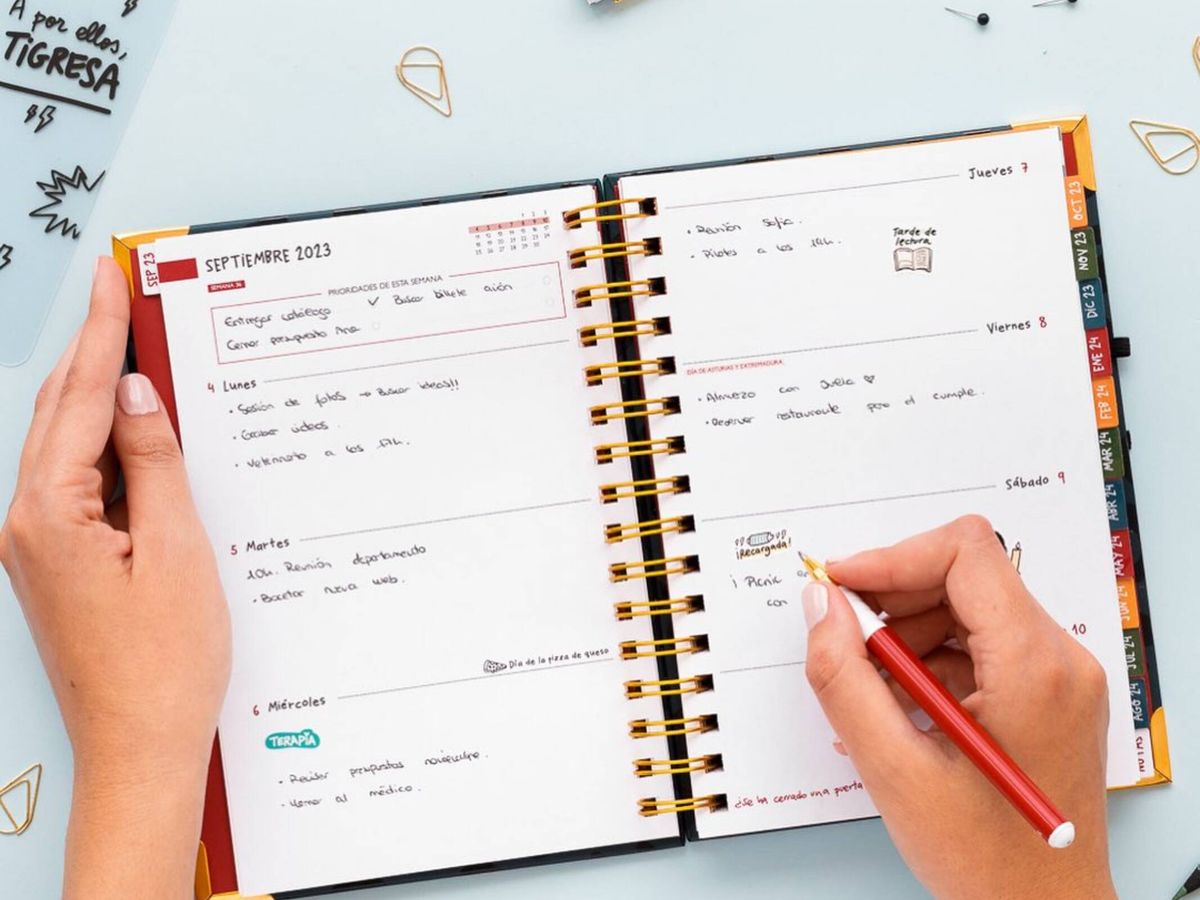 A por ellos,
TiGRESA
SEP 23
SEPTIEMBRE 2023
SEMANA 36
PRIORIDADES DE ESTA SEMANA
Entregar catálogo
✓ Buscar billete avión
Cerrar presupuesto Ana
1 2 3
4 5 6 7 8 9 10
11 12 13 14 15 16 17
18 19 20 21 22 23 24
25 26 27 28 29 30
4 Lunes
• Sesión de fotos → Buscar ideas!!
• Grabar videos.
• Veterinario a las 17h.
5 Martes
10h. Reunión departamento
• Bocetar nueva web.
Día de la pizza de queso
6 Miércoles
TERAPIA
• Revisar propuestas
• Llamar al médico.
Jueves 7
• Reunión Sofía.
• Pilates a las 19h.
Tarde de
lectura
Viernes 8
DÍA DE ASTURIAS Y EXTREMADURA
• Almuerzo con Suela ♥
• Reservar restaurante para el cumple.
Sábado 9
¡Recargada!
¡ Picnic en
con
10
¿Se ha cerrado una puerta
OCT 23
NOV 23
DIC 23
ENE 24
FEB 24
MAR 24
ABR 24
MAY 24
JUN 24
JUL 24
AGO 24
NOTAS